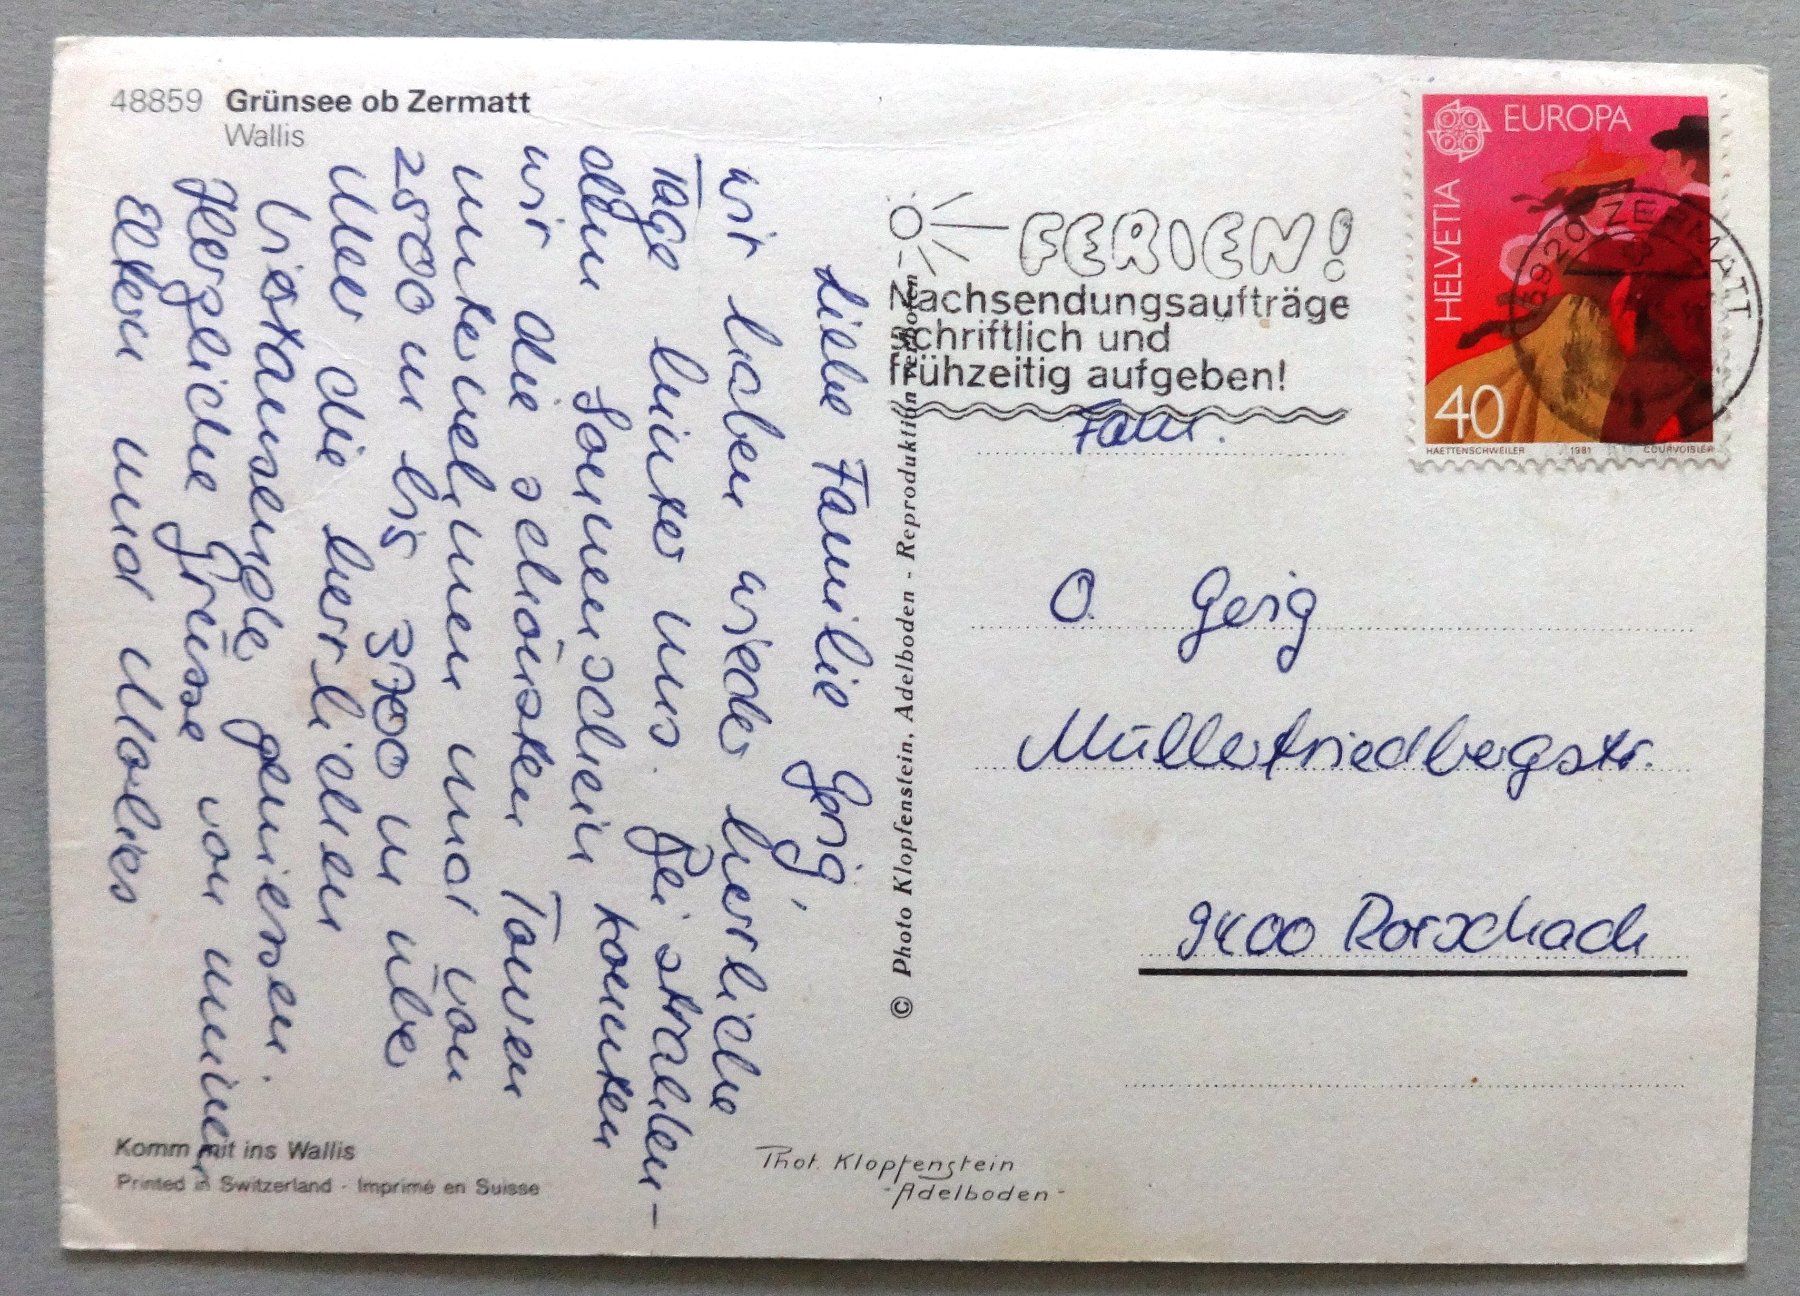 48859 Grünsee ob Zermatt
Wallis
Liebe Familie Gerig,
wir haben wieder herrliche
Tage hinter uns. Bei strahlen-
dem Sonnenschein konnten
wir die schönsten Touren
unternehmen und von
2500 m bis 3700 m über
Meer die herrlichen
Viertausender geniessen.
Herzliche Grüsse von meinen
Eltern und
FERIEN!
Nachsendungsaufträge
schriftlich und
frühzeitig aufgeben!
EUROPA
HELVETIA
40
HAETTENSCHWEILER 1981 COURVOISIER
3920 ZERMATT
Fam.
O. Gerig
Müllerfriedbergstr.
9400 Rorschach
© Photo Klopfenstein, Adelboden - Reproduktion verboten
Komm mit ins Wallis
Printed in Switzerland - Imprimé en Suisse
Phot. Klopfenstein
-Adelboden-